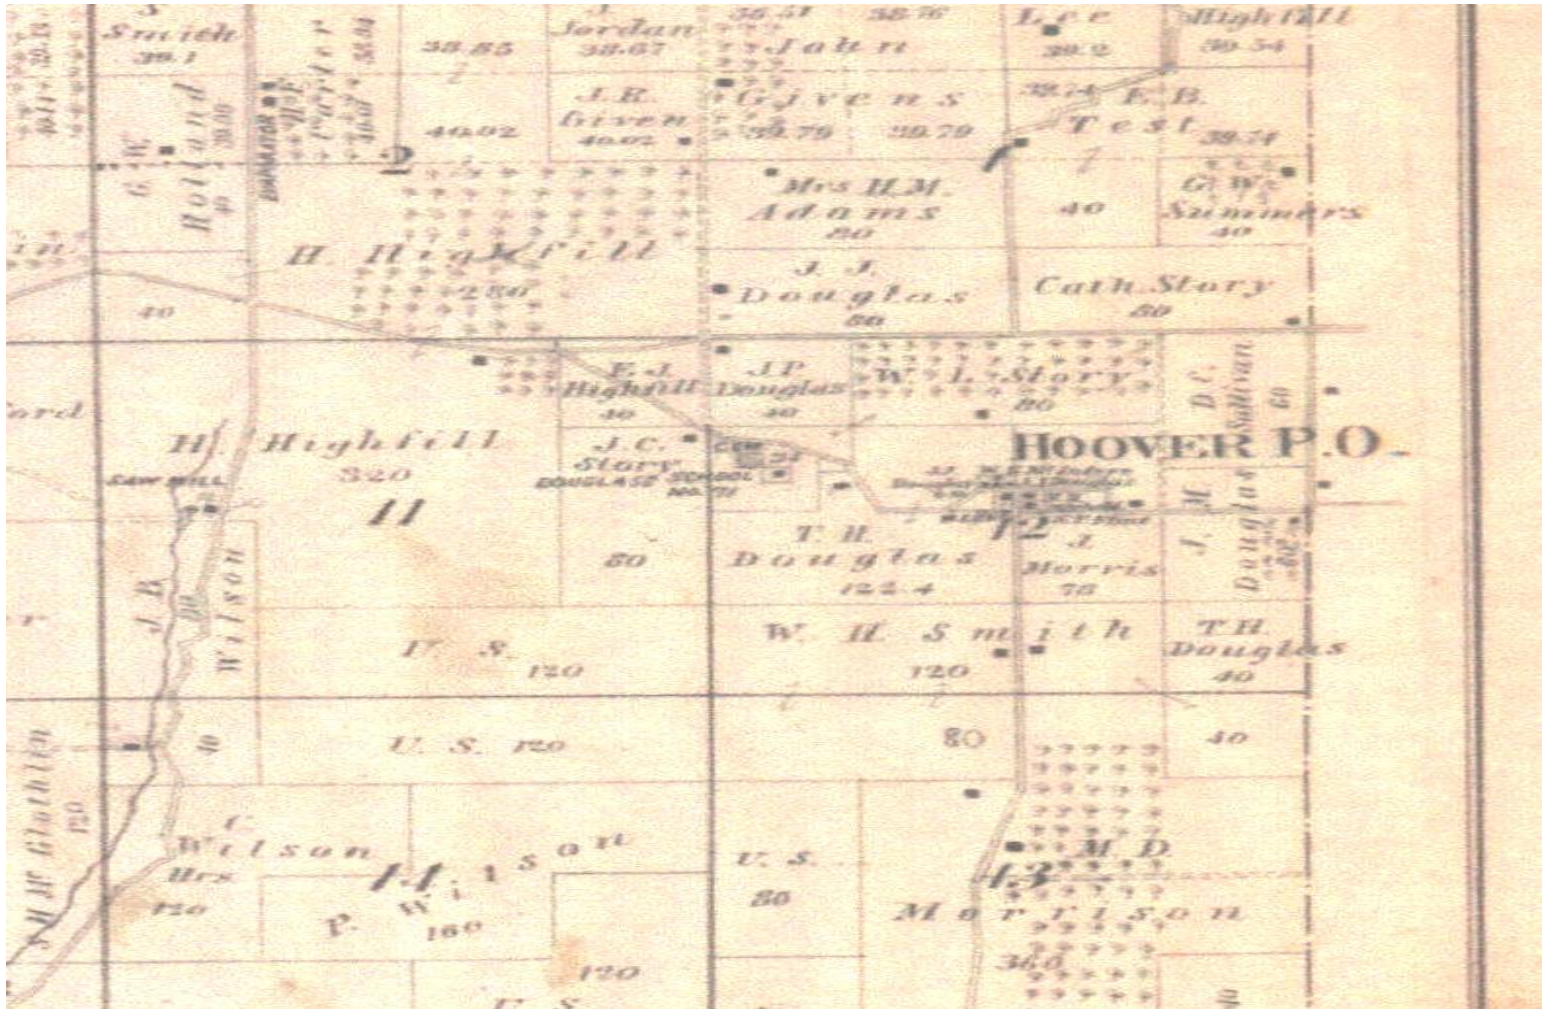 Smith
39.1
38.85
Jordan
38.67
38.51
38.76
John
Lee
39.2
Highfill
39.54
G. W.
Rolland
40
Porter
40.02
J. R.
Given
40.02
Givens
39.79
39.79
39.74
E. B.
Test
39.74
2
1
Mrs H. M.
Adams
80
40
G. W.
Summers
40
H. Highfill
280
J. J.
Douglas
80
Cath. Story
80
40
E. J.
Highfill
40
J. P.
Douglas
40
W. L. Story
80
D. C.
Sullivan
60
ord
H. Highfill
320
SAW MILL
11
J. C.
Story
80
DOUGLASS SCHOOL
NO. 71
HOOVER P.O.
12
T. H.
Douglas
122.4
J.
Morris
78
J. M.
Douglas
J. B.
Wilson
U. S.
120
W. H. Smith
120
T. H.
Douglas
40
40
U. S. 120
80
40
S H Mc Glothlin
120
C.
Wilson
Hrs
120
14
P. Wilson
160
U. S.
80
13
M. D.
Morrison
360
120
U. S.
40